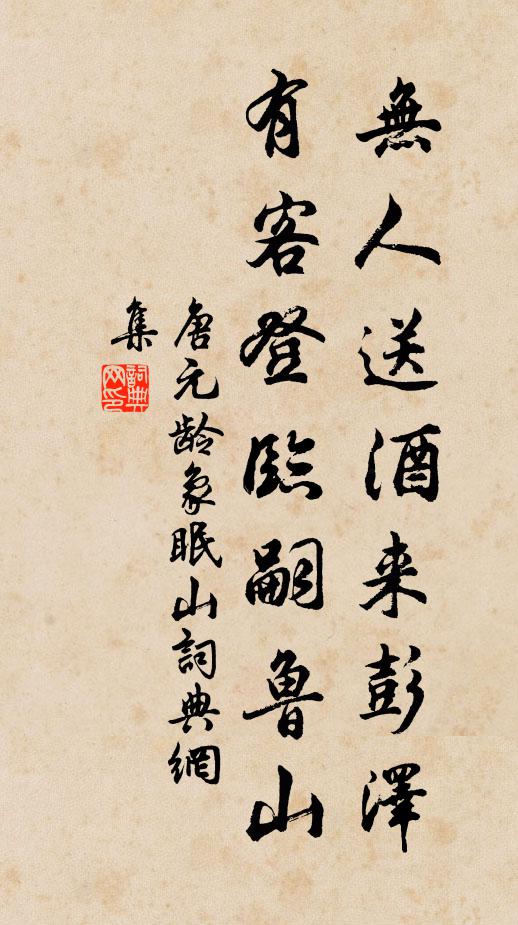 無人送酒来彭澤
有客登臨嗣魯山
唐元龄象眠山詞典網
集
詞典網印